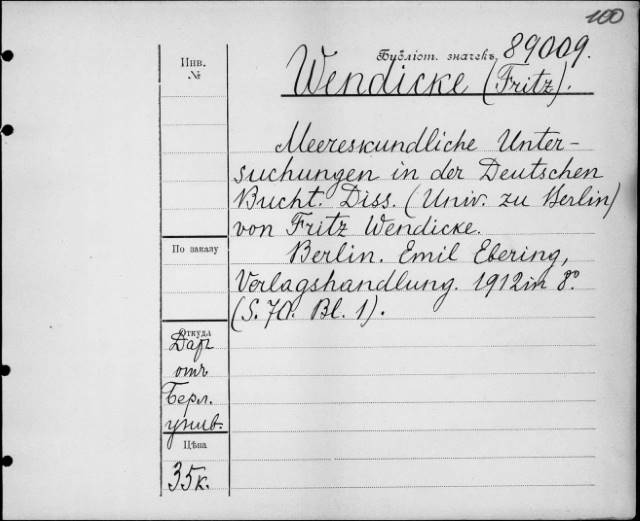 100
Библіот. значекъ 89009.
Wendicke (Fritz).
Инв.
№
Meereskundliche Unter-
suchungen in der Deutschen
Bucht. Diss. (Univ. zu Berlin)
von Fritz Wendicke.
Berlin. Emil Ebering,
Verlagshandlung. 1912 in 8°.
(S. 70. Bl. 1).
По заказу
Откуда
Даръ
отъ
Берл.
унив.
Цѣна
35к.